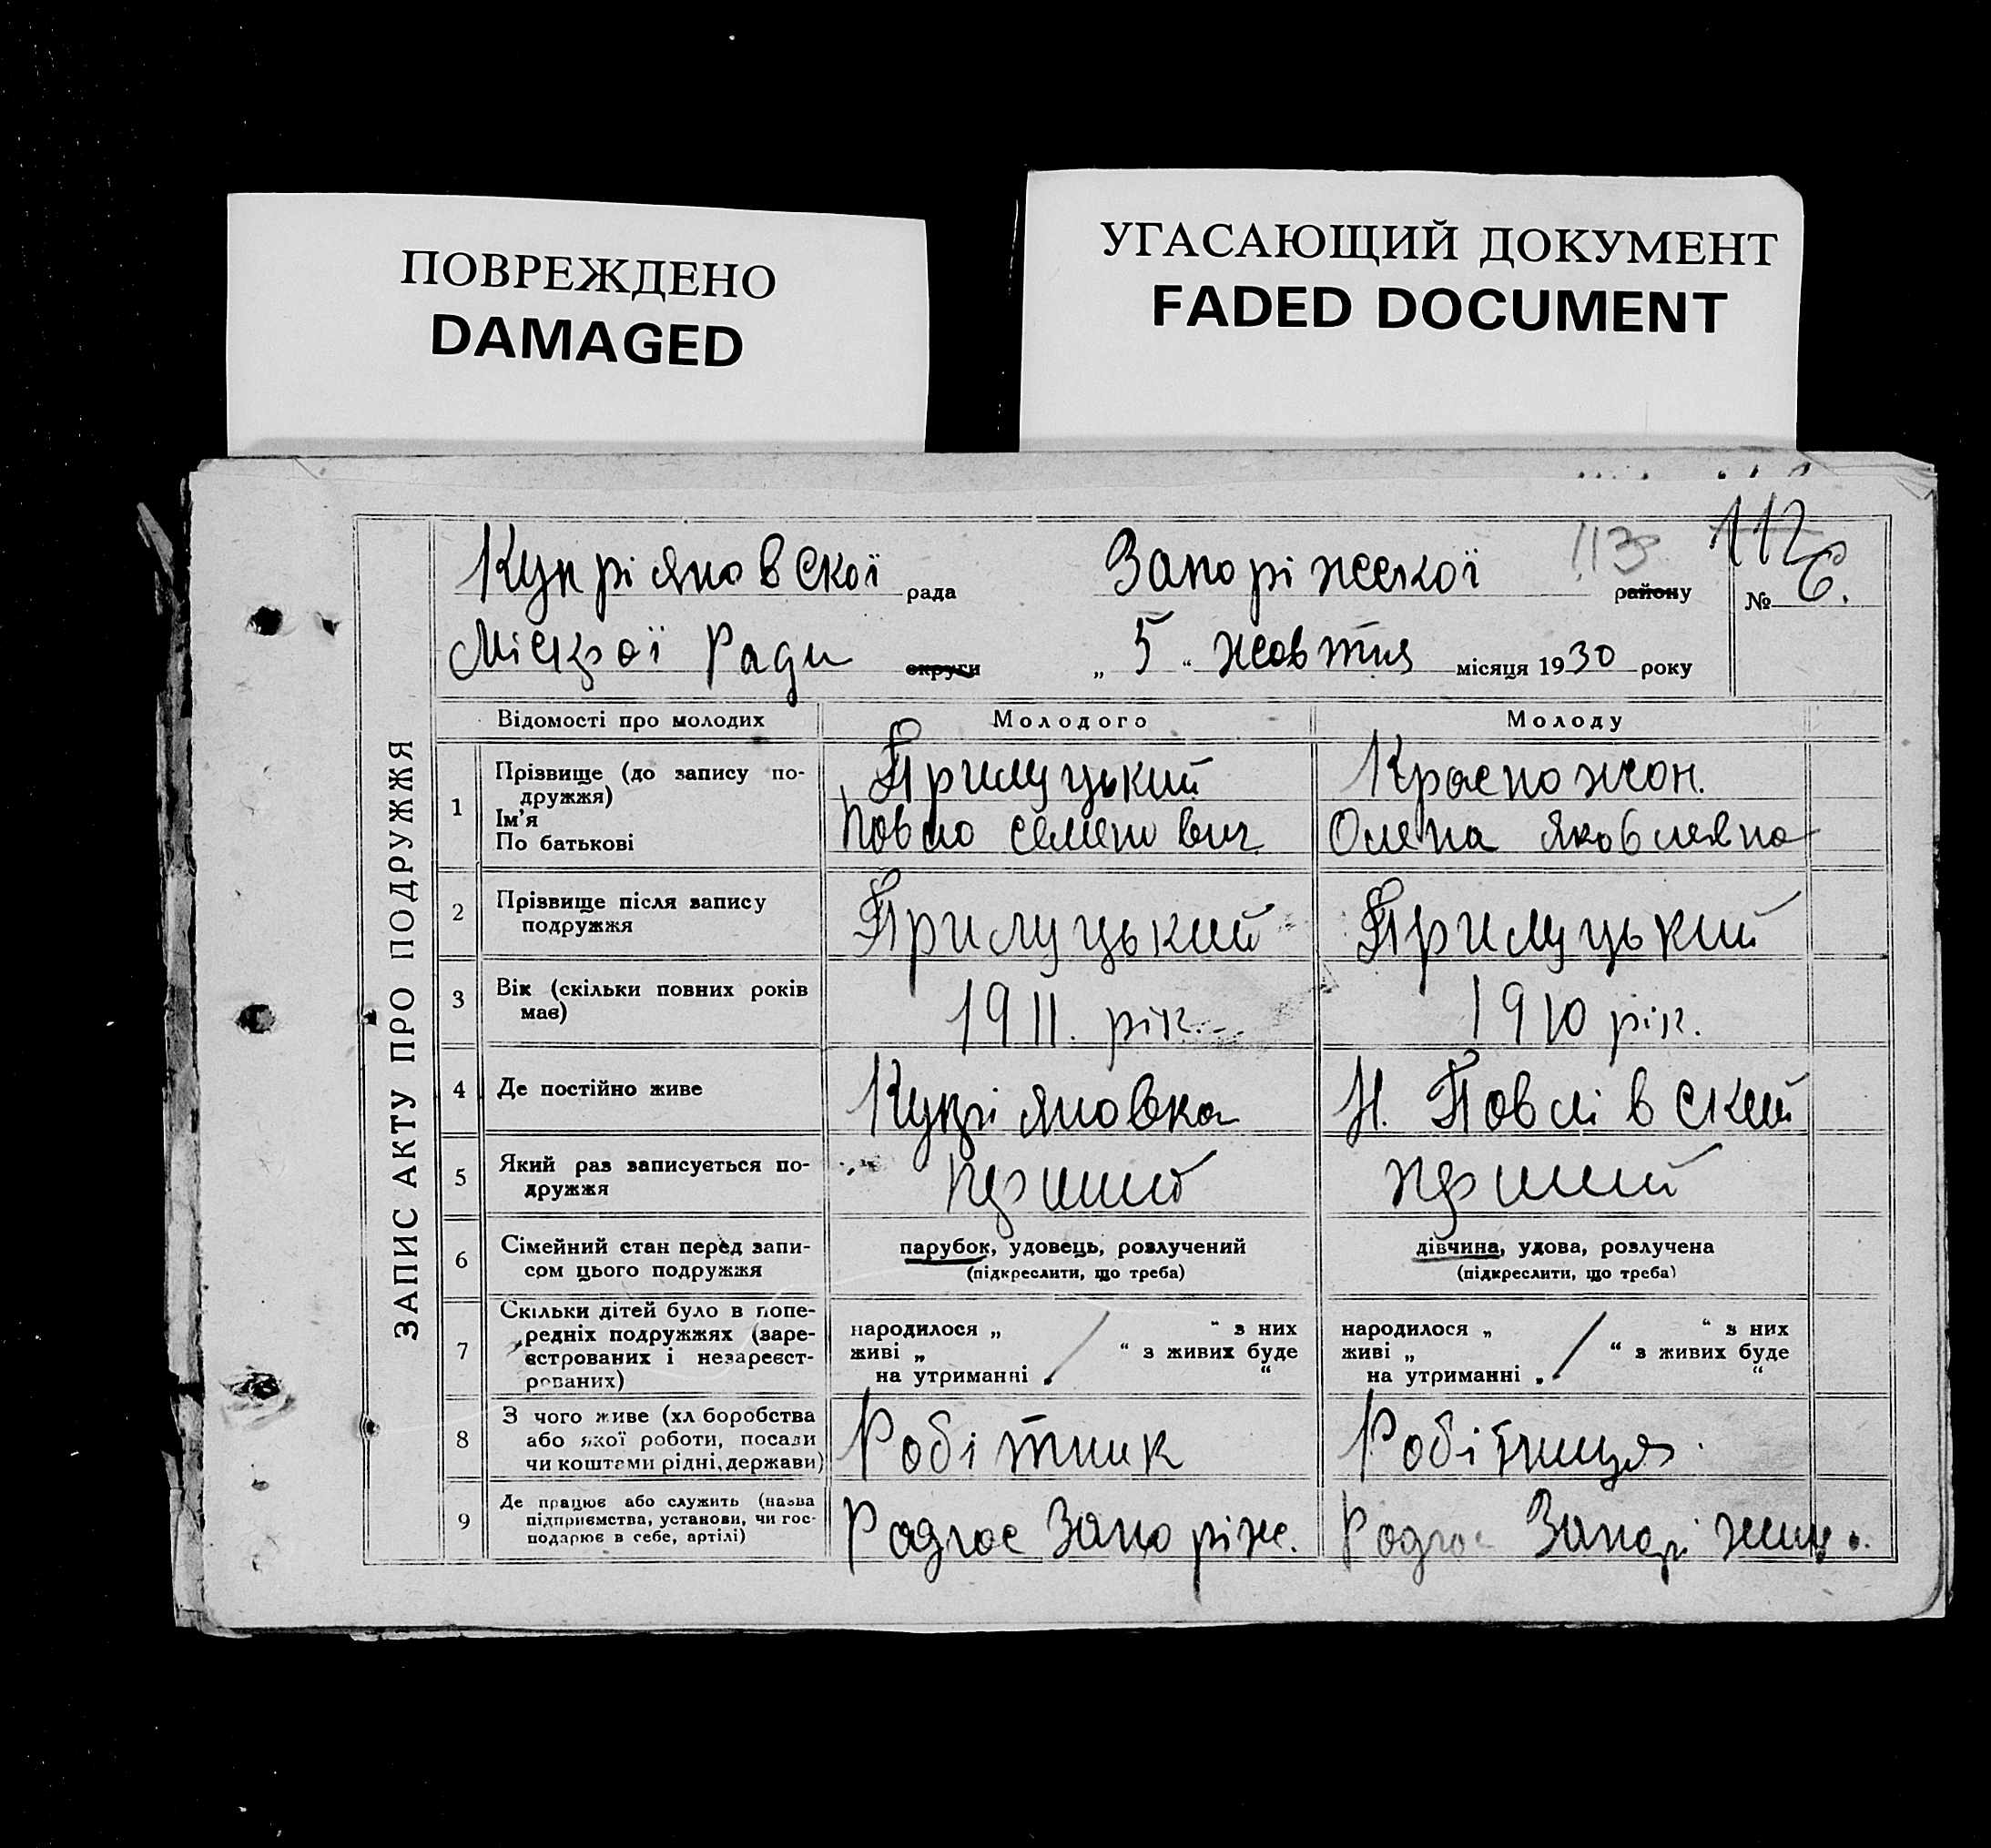 ПОВРЕЖДЕНО
DAMAGED
УГАСАЮЩИЙ ДОКУМЕНТ
FADED DOCUMENT
ЗАПИС АКТУ ПРО ПОДРУЖЖЯ
113 112
Купріяновскої рада Запоріжскої району № 6.
Міскої Ради округи „ 5 “ жовтня місяця 1930 року
Відомості про молодих Молодого Молоду
1 Прізвище (до запису по-
дружжя)
Ім'я
По батькові
Прилуцький
Повло Семенович
Красножон.
Олена Яковлевна
2 Прізвище після запису
подружжя
Прилуцький Прилуцький
3 Вік (скільки повних років
має)
1911. рік. 1910 рік.
4 Де постійно живе Купріяновка Н. Повлівский
5 Який раз записується по-
дружжя
перший перший
6 Сімейний стан перед запи-
сом цього подружжя
парубок, удовець, розлучений
(підкреслити, що треба)
дівчина, удова, розлучена
(підкреслити, що треба)
7 Скільки дітей було в попе-
редніх подружжях (заре-
єстрованих і незареєст-
рованих)
народилося „ “ з них
живі „ “ з живих буде
на утриманні „ “
народилося „ “ з них
живі „ “ з живих буде
на утриманні „ “
8 З чого живе (хл боробства
або якої роботи, посади
чи коштами рідні, держави)
Робітник Робітниця
9 Де працює або служить (назва
підприємства, установи, чи гос-
подарює в себе, артілі)
Радгос Запоріж. Радгос